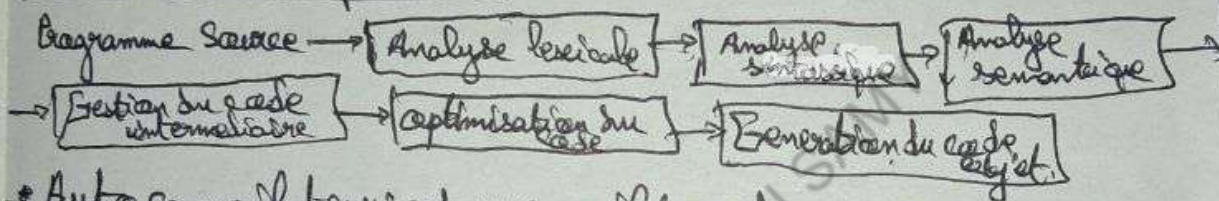 Programme Source → Analyse lexicale → Analyse sintaxique → Analyse semantique →
→ Gestion du code intermediaire → optimisation du code → Generation du code objet.